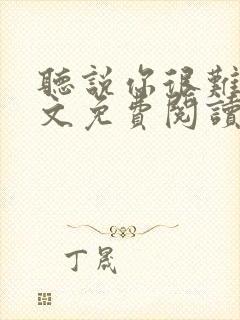 聽說你很難
文免費閱讀
丁晟